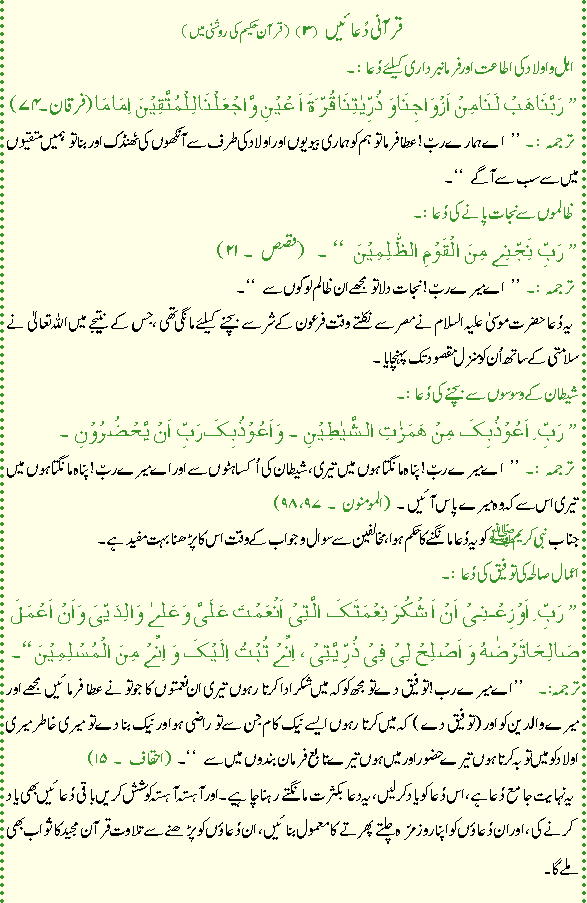 قرآنی دُعائیں (۳) (قرآن حکیم کی روشنی میں)
اہل و اولاد کی اطاعت اور فرمانبرداری کیلئے دُعا :۔
” رَبَّنَا هَبْ لَنَا مِنْ اَزْوَاجِنَا وَ ذُرِّيّٰتِنَا قُرَّةَ اَعْيُنٍ وَّاجْعَلْنَا لِلْمُتَّقِيْنَ اِمَامًا (فرقان۔۷۴)
ترجمہ :۔ ’’ اے ہمارے ربّ! عطا فرما تو ہم کو ہماری بیویوں اور اولاد کی طرف سے آنکھوں کی ٹھنڈک اور بنا تو ہمیں متقیوں
میں سے سب سے آگے ‘‘۔
ظالموں سے نجات پانے کی دُعا :۔
” رَبِّ نَجِّنِيْ مِنَ الْقَوْمِ الظّٰلِمِيْنَ ‘‘ ۔ (قصص ۔ ۲۱)
ترجمہ :۔ ’’ اے میرے ربّ! نجات دلا تو مجھے ان ظالم لوگوں سے ‘‘۔
یہ دُعا حضرت موسیٰ علیہ السلام نے مصر سے نکلتے وقت فرعون کے شر سے بچنے کیلئے مانگی تھی ، جس کے نتیجے میں اللہ تعالیٰ نے
سلامتی کے ساتھ اُن کو منزل مقصود تک پہنچایا ۔
شیطان کے وسوسوں سے بچنے کی دُعا :۔
” رَبِّ اَعُوْذُبِکَ مِنْ هَمَزٰتِ الشَّيٰطِيْنِ ۔ وَ اَعُوْذُبِکَ رَبِّ اَنْ يَّحْضُرُوْنِ ۔
ترجمہ :۔ ’’ اے میرے ربّ! پناہ مانگتا ہوں میں تیری، شیطان کی اُکساہٹوں سے اور اے میرے ربّ! پناہ مانگتا ہوں میں
تیری اس سے کہ وہ میرے پاس آئیں ۔ (المومنون ۔ ۹۷،۹۸)
جناب نبی کریم ﷺ کو یہ دُعا مانگنے کا حکم ہوا، مخالفین سے سوال و جواب کے وقت اس کا پڑھنا بہت مفید ہے۔
اعمال صالحہ کی توفیق کی دُعا :۔
” رَبِّ اَوْزِعْنِيْ اَنْ اَشْکُرَ نِعْمَتَکَ الَّتِيْ اَنْعَمْتَ عَلَيَّ وَعَلٰی وَالِدَيَّ وَاَنْ اَعْمَلَ
صَالِحًا تَرْضٰهُ وَ اَصْلِحْ لِيْ فِيْ ذُرِّيَّتِيْ ، اِنِّيْ تُبْتُ اِلَيْکَ وَ اِنِّيْ مِنَ الْمُسْلِمِيْنَ ‘‘۔
ترجمہ:۔ ’’اے میرے ربّ! توفیق دے تو مجھ کو کہ میں شکر ادا کرتا رہوں تیری ان نعمتوں کا جو تو نے عطا فرمائیں مجھے اور
میرے والدین کو اور (توفیق دے) کہ میں کرتا رہوں ایسے نیک کام جن سے تو راضی ہو اور نیک بنا دے تو میری خاطر میری
اولاد کو میں توبہ کرتا ہوں تیرے حضور اور میں ہوں تیرے تابع فرمان بندوں میں سے ‘‘۔ (احقاف ۔ ۱۵)
یہ نہایت جامع دُعا ہے، اس دُعا کو یاد کرلیں، یہ دعا بکثرت مانگتے رہنا چاہیے۔ اور آہستہ آہستہ کوشش کریں باقی دُعائیں بھی یاد
کرنے کی، اور ان دُعاؤں کو اپنا روز مرّہ چلتے پھرتے کا معمول بنائیں، ان دُعاؤں کو پڑھنے سے تلاوت قرآن مجید کا ثواب بھی
ملے گا۔